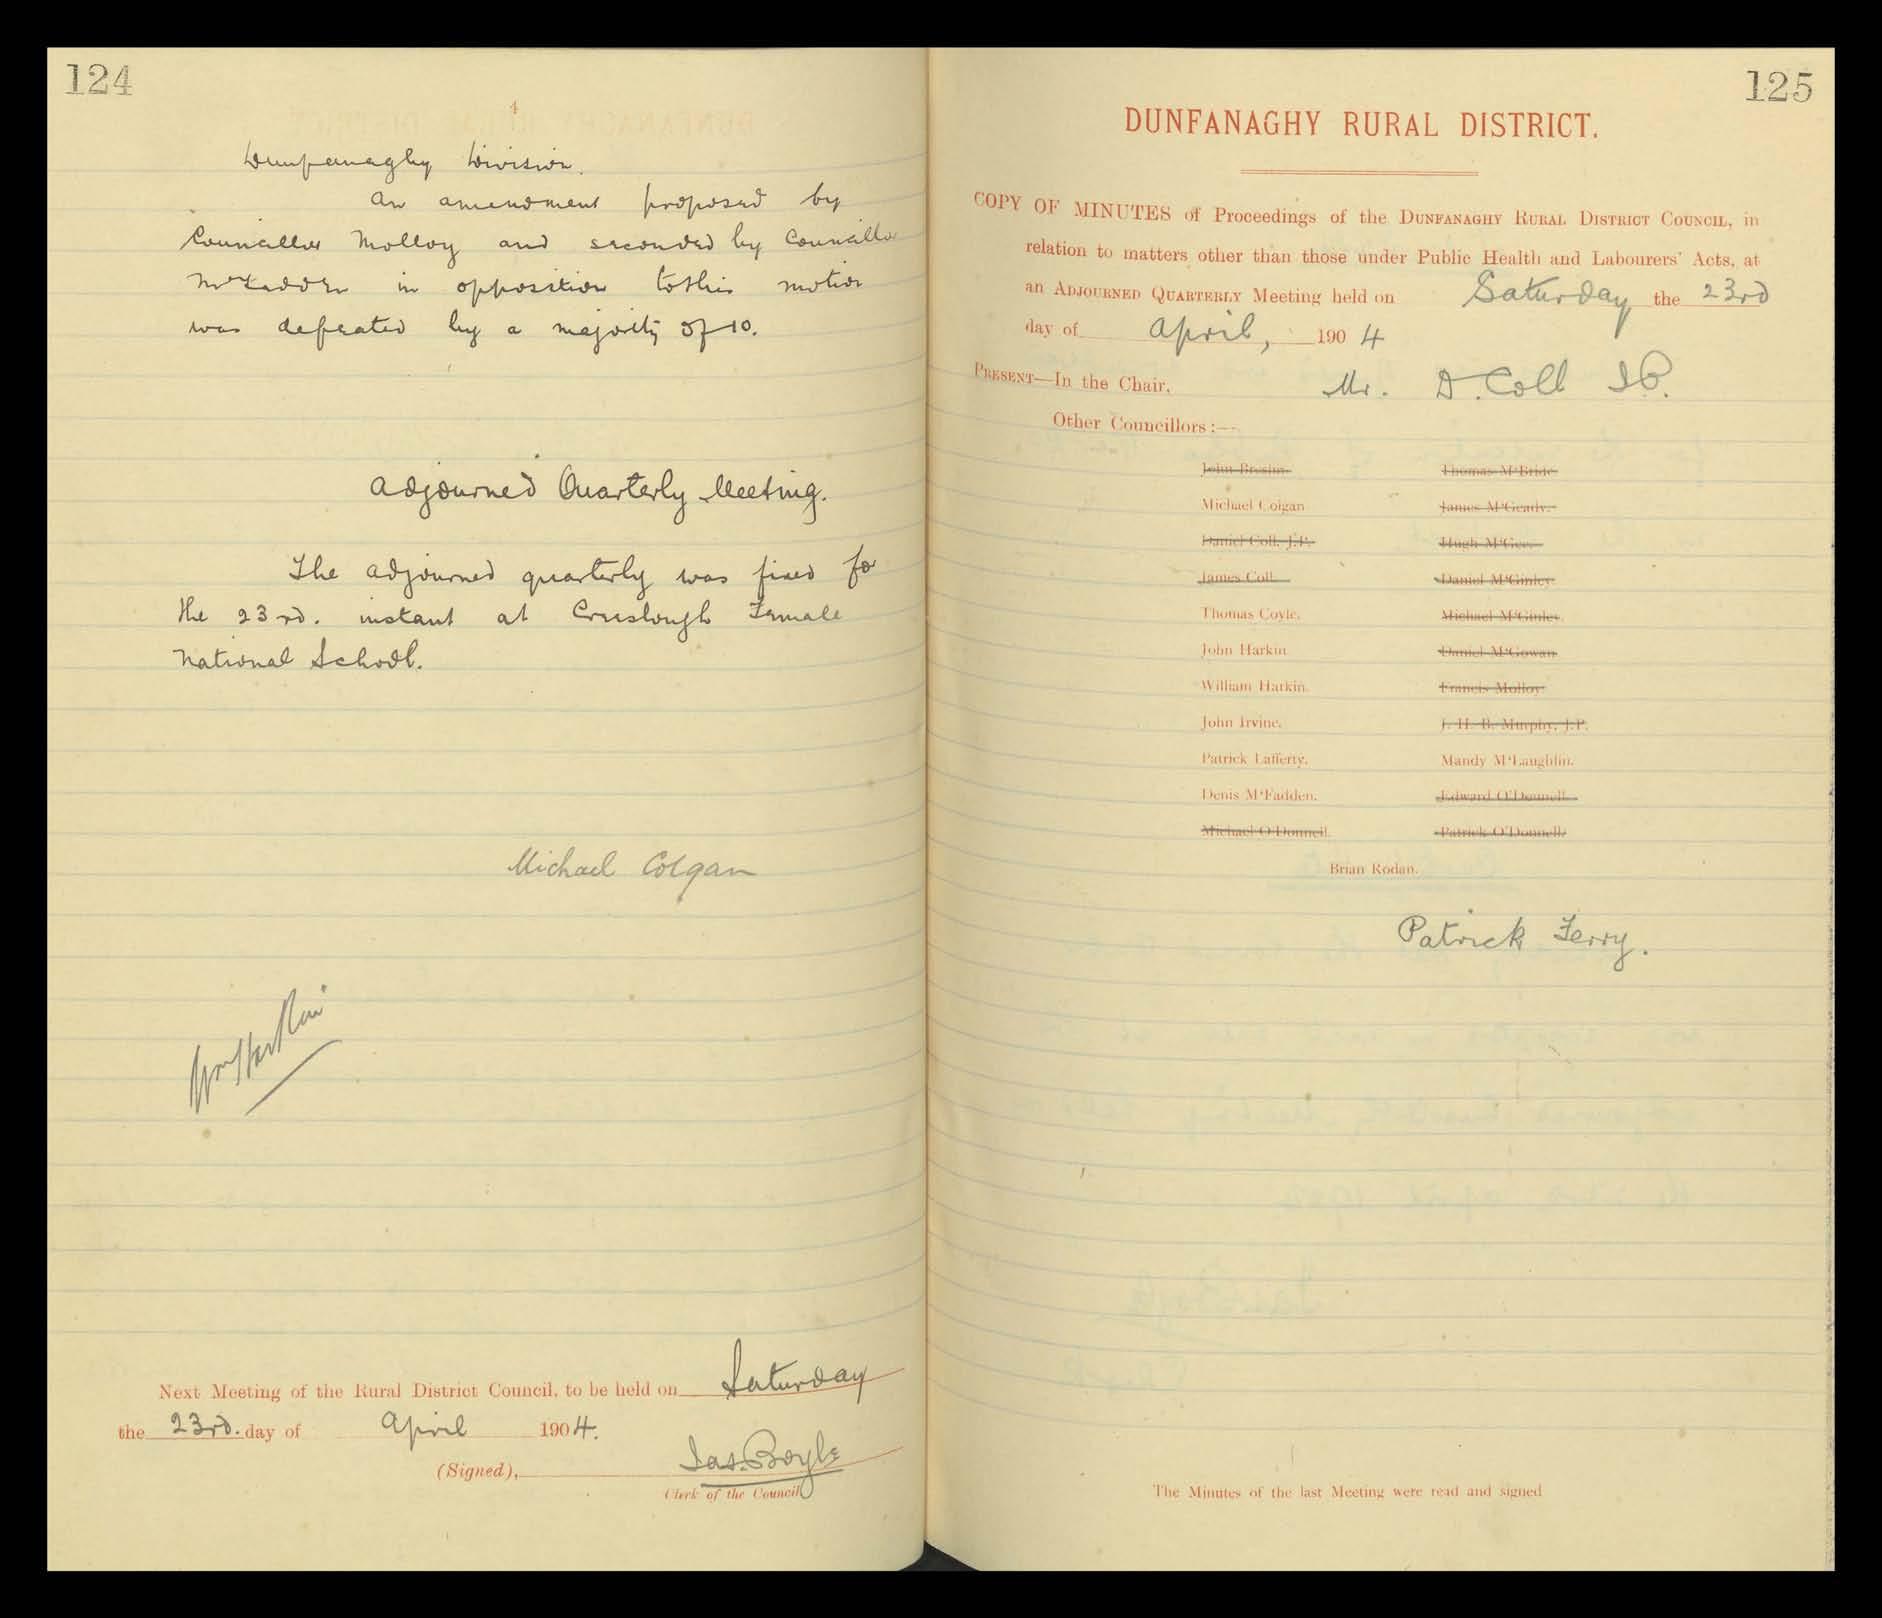 124
4
Dunfanaghy Division.
An amendment proposed by
Councillor Molloy and seconded by Councillor
McFadden in opposition to this motion
was defeated by a majority of 10.
Adjourned Quarterly Meeting.
The adjourned quarterly was fixed for
the 23rd. instant at Creeslough Female
National School.
Michael Colgan
Wm Harkin
Next Meeting of the Rural District Council, to be held on Saturday
the 23rd. day of April 1904.
(Signed), Jas. Boyle
Clerk of the Council
125
DUNFANAGHY RURAL DISTRICT.
COPY OF MINUTES of Proceedings of the DUNFANAGHY RURAL DISTRICT COUNCIL, in
relation to matters other than those under Public Health and Labourers' Acts, at
an ADJOURNED QUARTERLY Meeting held on Saturday the 23rd
day of April, 1904
PRESENT—In the Chair, Mr. D. Coll J.P.
Other Councillors:—
John Breslin. Thomas M'Bride.
Michael Colgan James M'Geady.
Daniel Coll, J.P. Hugh M'Gee.
James Coll Daniel M'Ginley
Thomas Coyle. Michael M'Ginley.
John Harkin Daniel M'Gowan
William Harkin. Francis Molloy
John Irvine. J. H. B. Murphy, J.P.
Patrick Lafferty. Mandy M'Laughlin.
Denis M'Fadden. Edward O'Donnell
Michael O'Donnell. Patrick O'Donnell.
Brian Rodan.
Patrick Ferry.
The Minutes of the last Meeting were read and signed